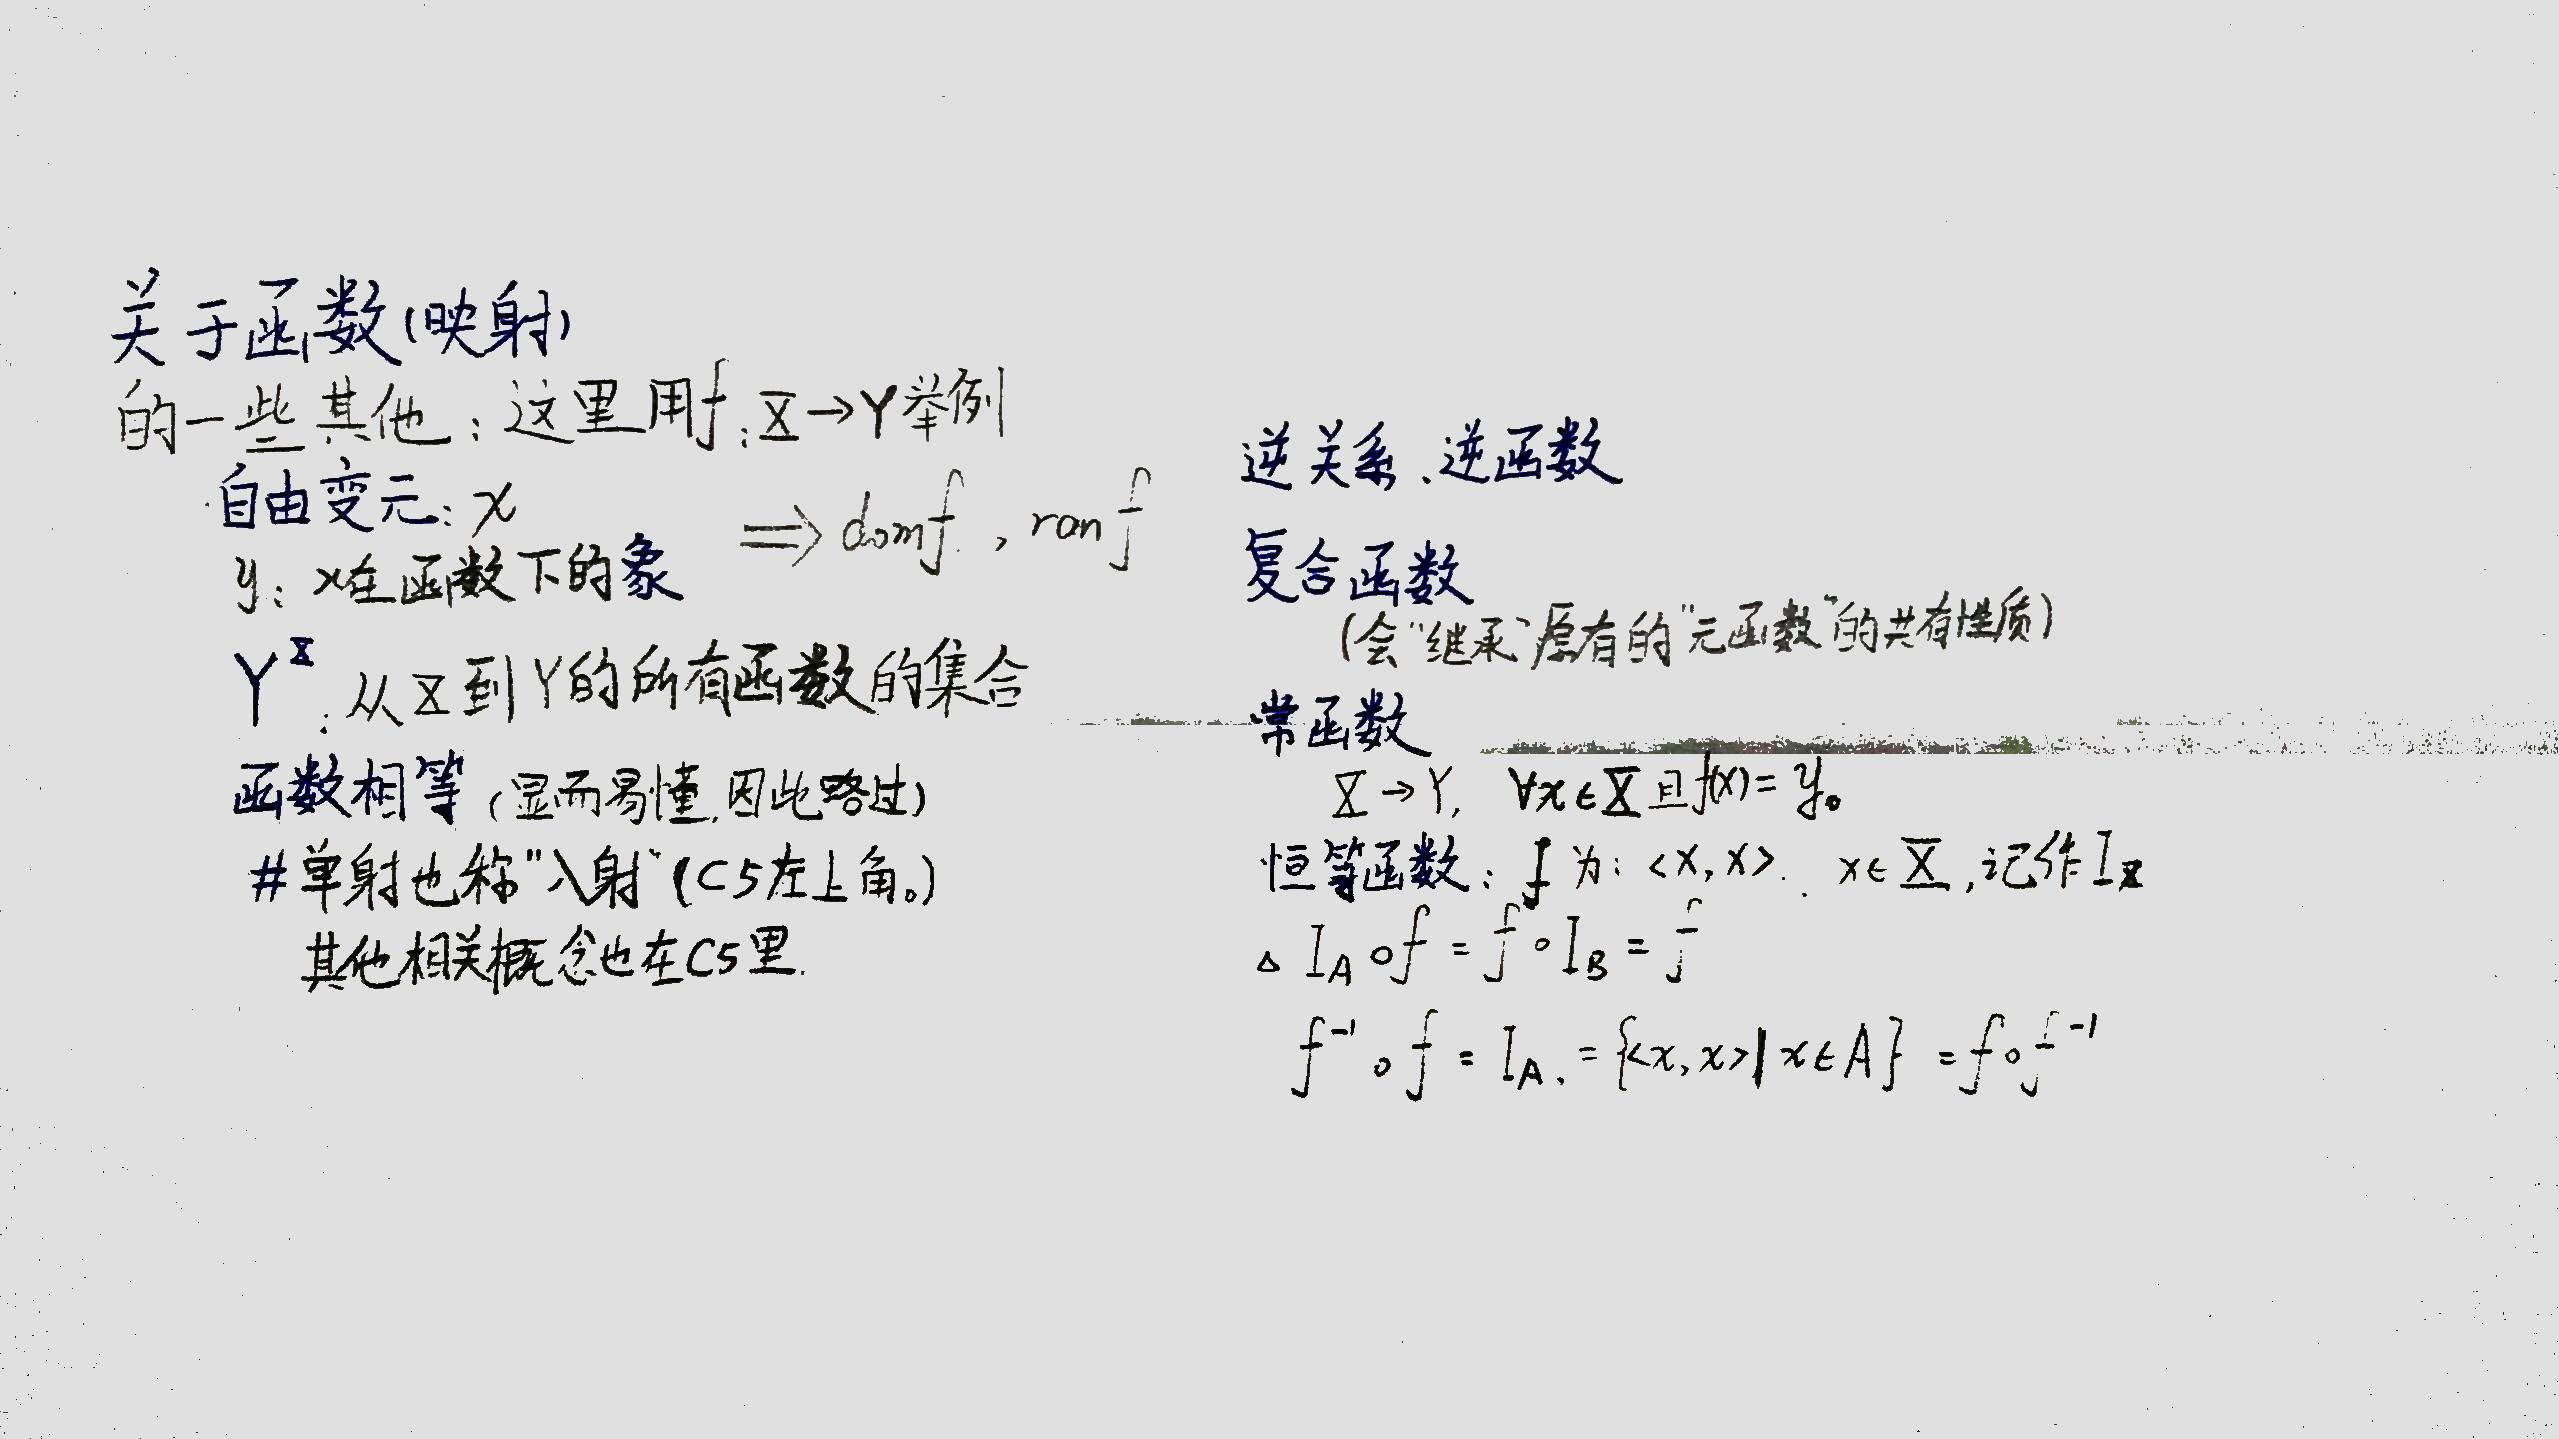 关于函数(映射)
的一些其他：这里用f:X→Y举例
自由变元：x
⇒domf，ranf
y：x在函数下的象
Y^X：从X到Y的所有函数的集合
函数相等（显而易懂，因此略过）
#单射也称"入射"(C5左上角。)
其他相关概念也在C5里.
逆关系、逆函数
复合函数
(会"继承"原有的"元函数"的共有性质)
常函数
X→Y, ∀x∈X且f(x)=y₀
恒等函数：f为：<x,x>. x∈X,记作I_X
△ I_A∘f=f∘I_B=f
f⁻¹∘f=I_A.={<x,x>|x∈A}=f∘f⁻¹